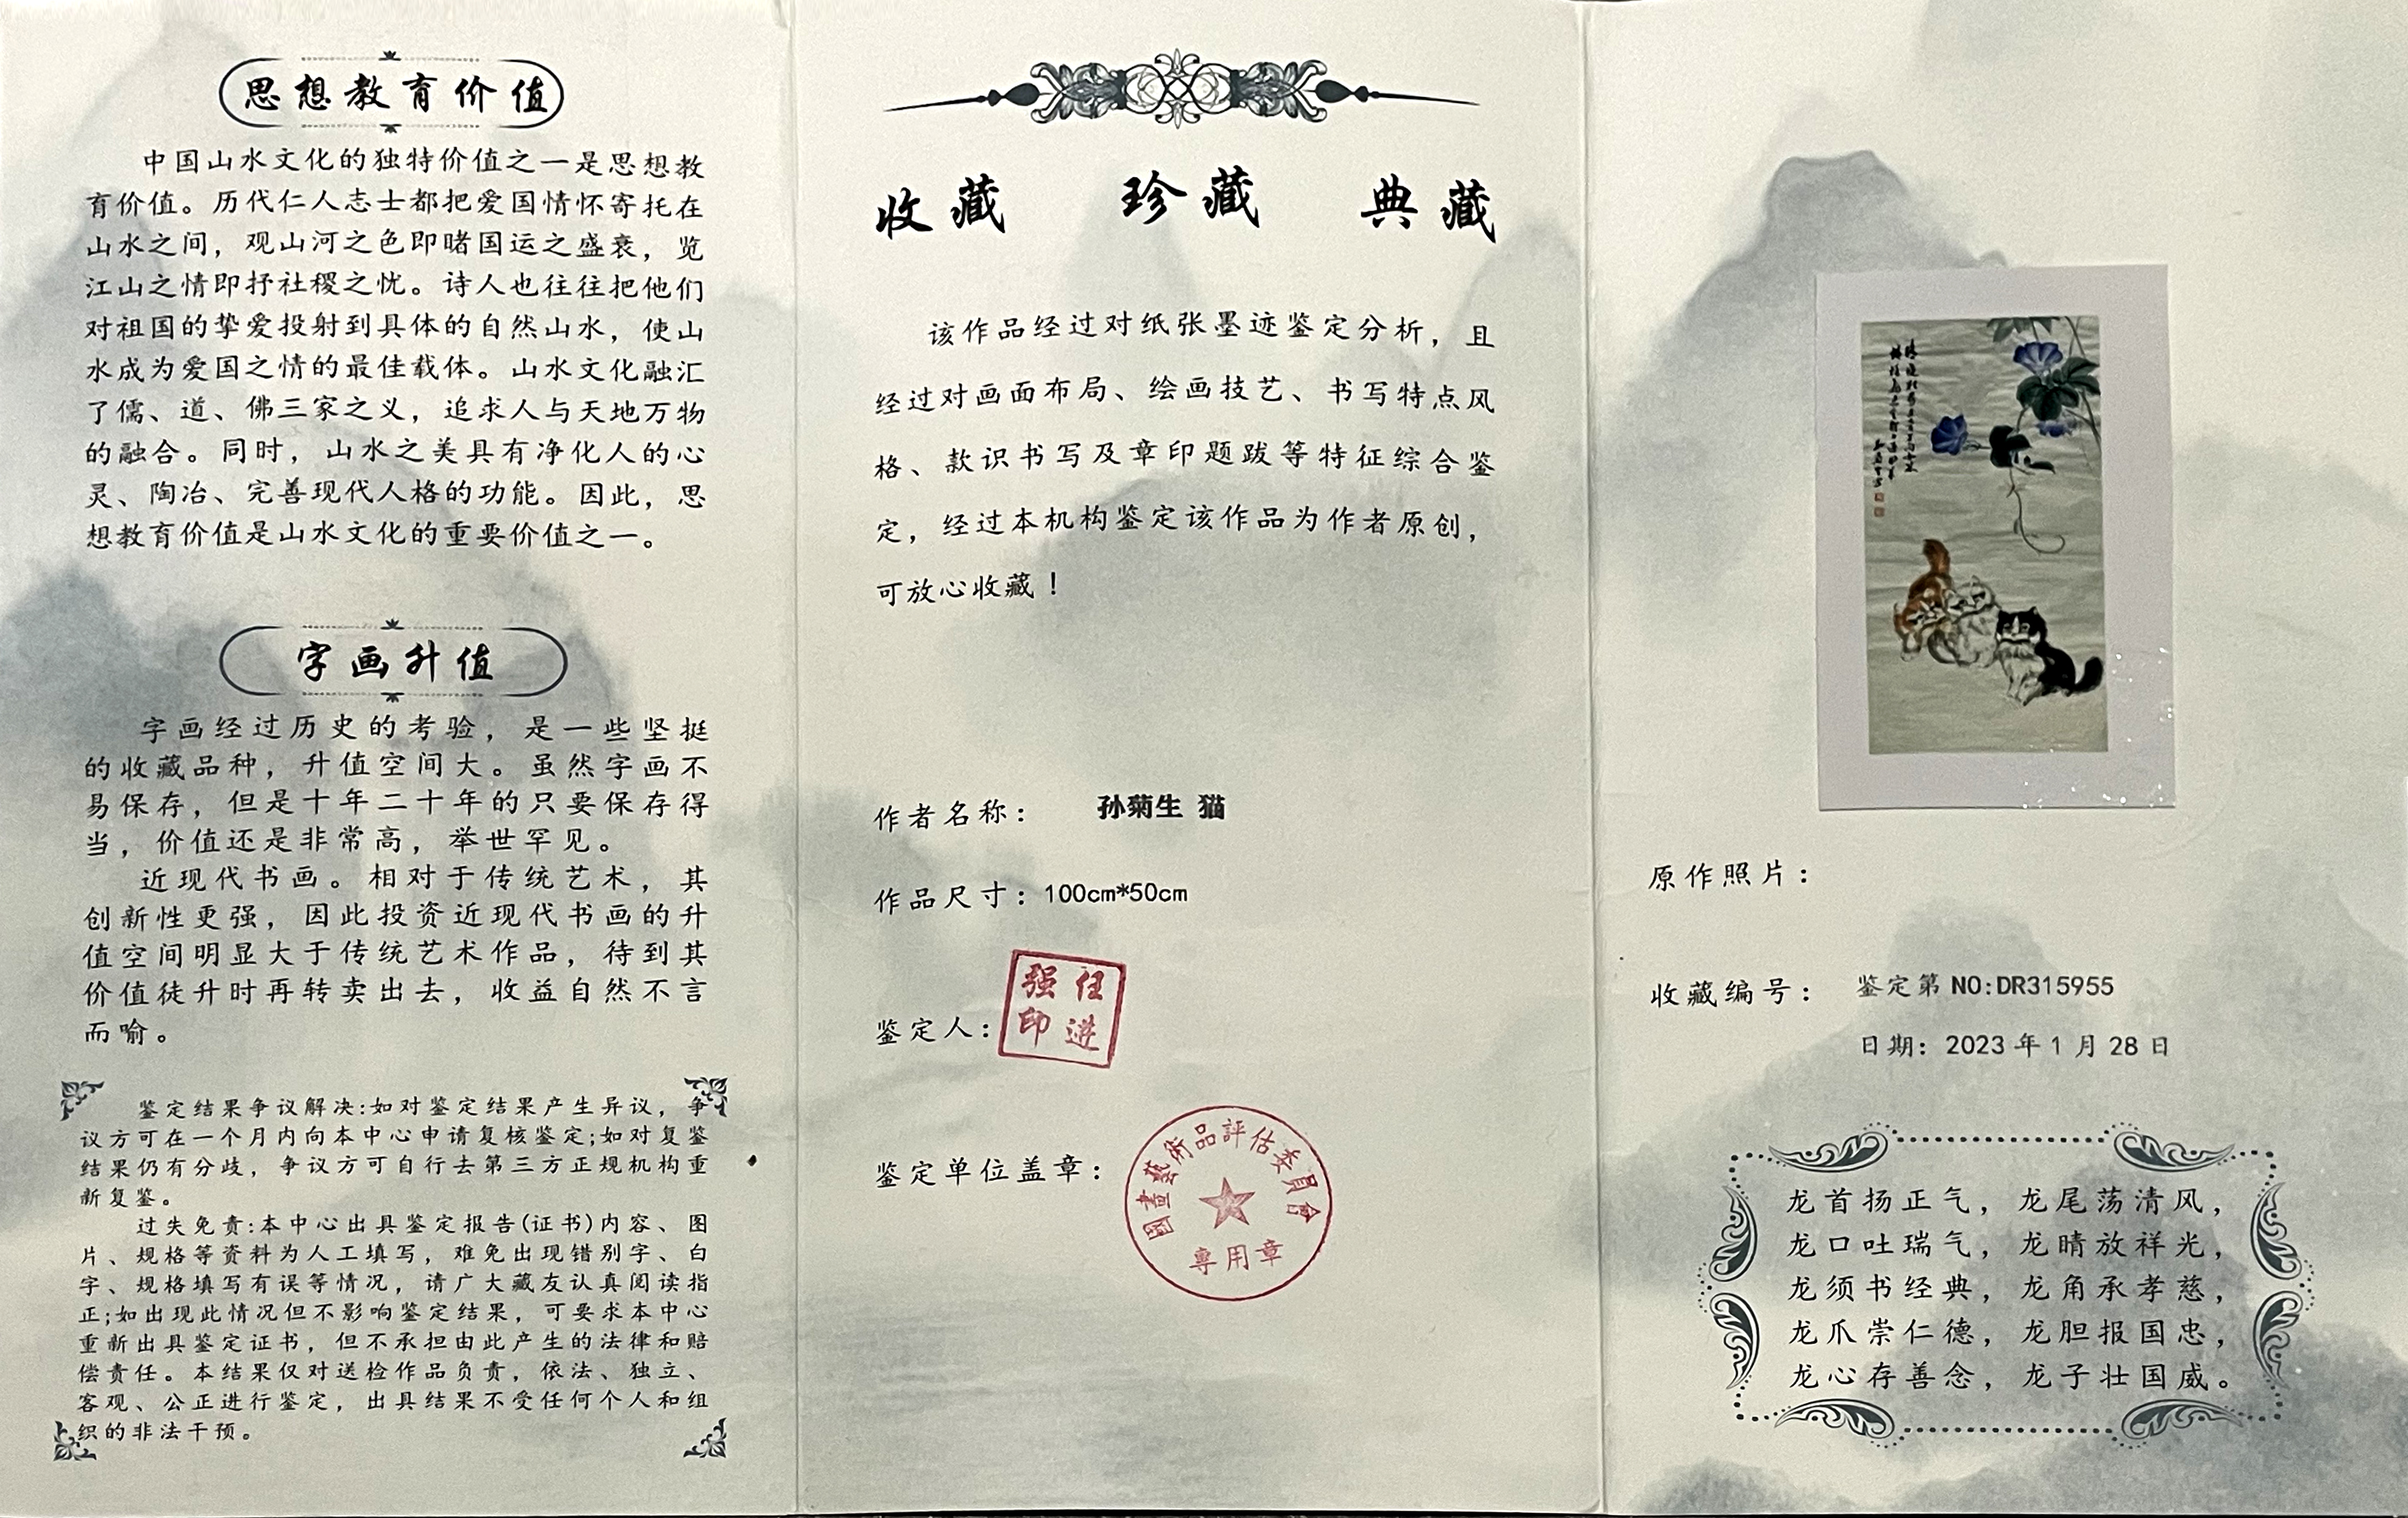 思想教育价值
中国山水文化的独特价值之一是思想教
育价值。历代仁人志士都把爱国情怀寄托在
山水之间，观山河之色即睹国运之盛衰，览
江山之情即抒社稷之忧。诗人也往往把他们
对祖国的挚爱投射到具体的自然山水，使山
水成为爱国之情的最佳载体。山水文化融汇
了儒、道、佛三家之义，追求人与天地万物
的融合。同时，山水之美具有净化人的心
灵、陶冶、完善现代人格的功能。因此，思
想教育价值是山水文化的重要价值之一。
字画升值
字画经过历史的考验，是一些坚挺
的收藏品种，升值空间大。虽然字画不
易保存，但是十年二十年的只要保存得
当，价值还是非常高，举世罕见。
近现代书画。相对于传统艺术，其
创新性更强，因此投资近现代书画的升
值空间明显大于传统艺术作品，待到其
价值徒升时再转卖出去，收益自然不言
而喻。
鉴定结果争议解决:如对鉴定结果产生异议，争
议方可在一个月内向本中心申请复核鉴定;如对复鉴
结果仍有分歧，争议方可自行去第三方正规机构重
新复鉴。
过失免责:本中心出具鉴定报告(证书)内容、图
片、规格等资料为人工填写，难免出现错别字、白
字、规格填写有误等情况，请广大藏友认真阅读指
正;如出现此情况但不影响鉴定结果，可要求本中心
重新出具鉴定证书，但不承担由此产生的法律和赔
偿责任。本结果仅对送检作品负责，依法、独立、
客观、公正进行鉴定，出具结果不受任何个人和组
织的非法干预。
收藏 珍藏 典藏
该作品经过对纸张墨迹鉴定分析，且
经过对画面布局、绘画技艺、书写特点风
格、款识书写及章印题跋等特征综合鉴
定，经过本机构鉴定该作品为作者原创，
可放心收藏！
作者名称： 孙菊生 猫
作品尺寸：100cm*50cm
鉴定人：
任进强印
鉴定单位盖章：
國畫藝術品評估委員會
專用章
原作照片：
收藏编号： 鉴定第 NO:DR315955
日期：2023 年 1 月 28 日
龙首扬正气，龙尾荡清风，
龙口吐瑞气，龙睛放祥光，
龙须书经典，龙角承孝慈，
龙爪崇仁德，龙胆报国忠，
龙心存善念，龙子壮国威。